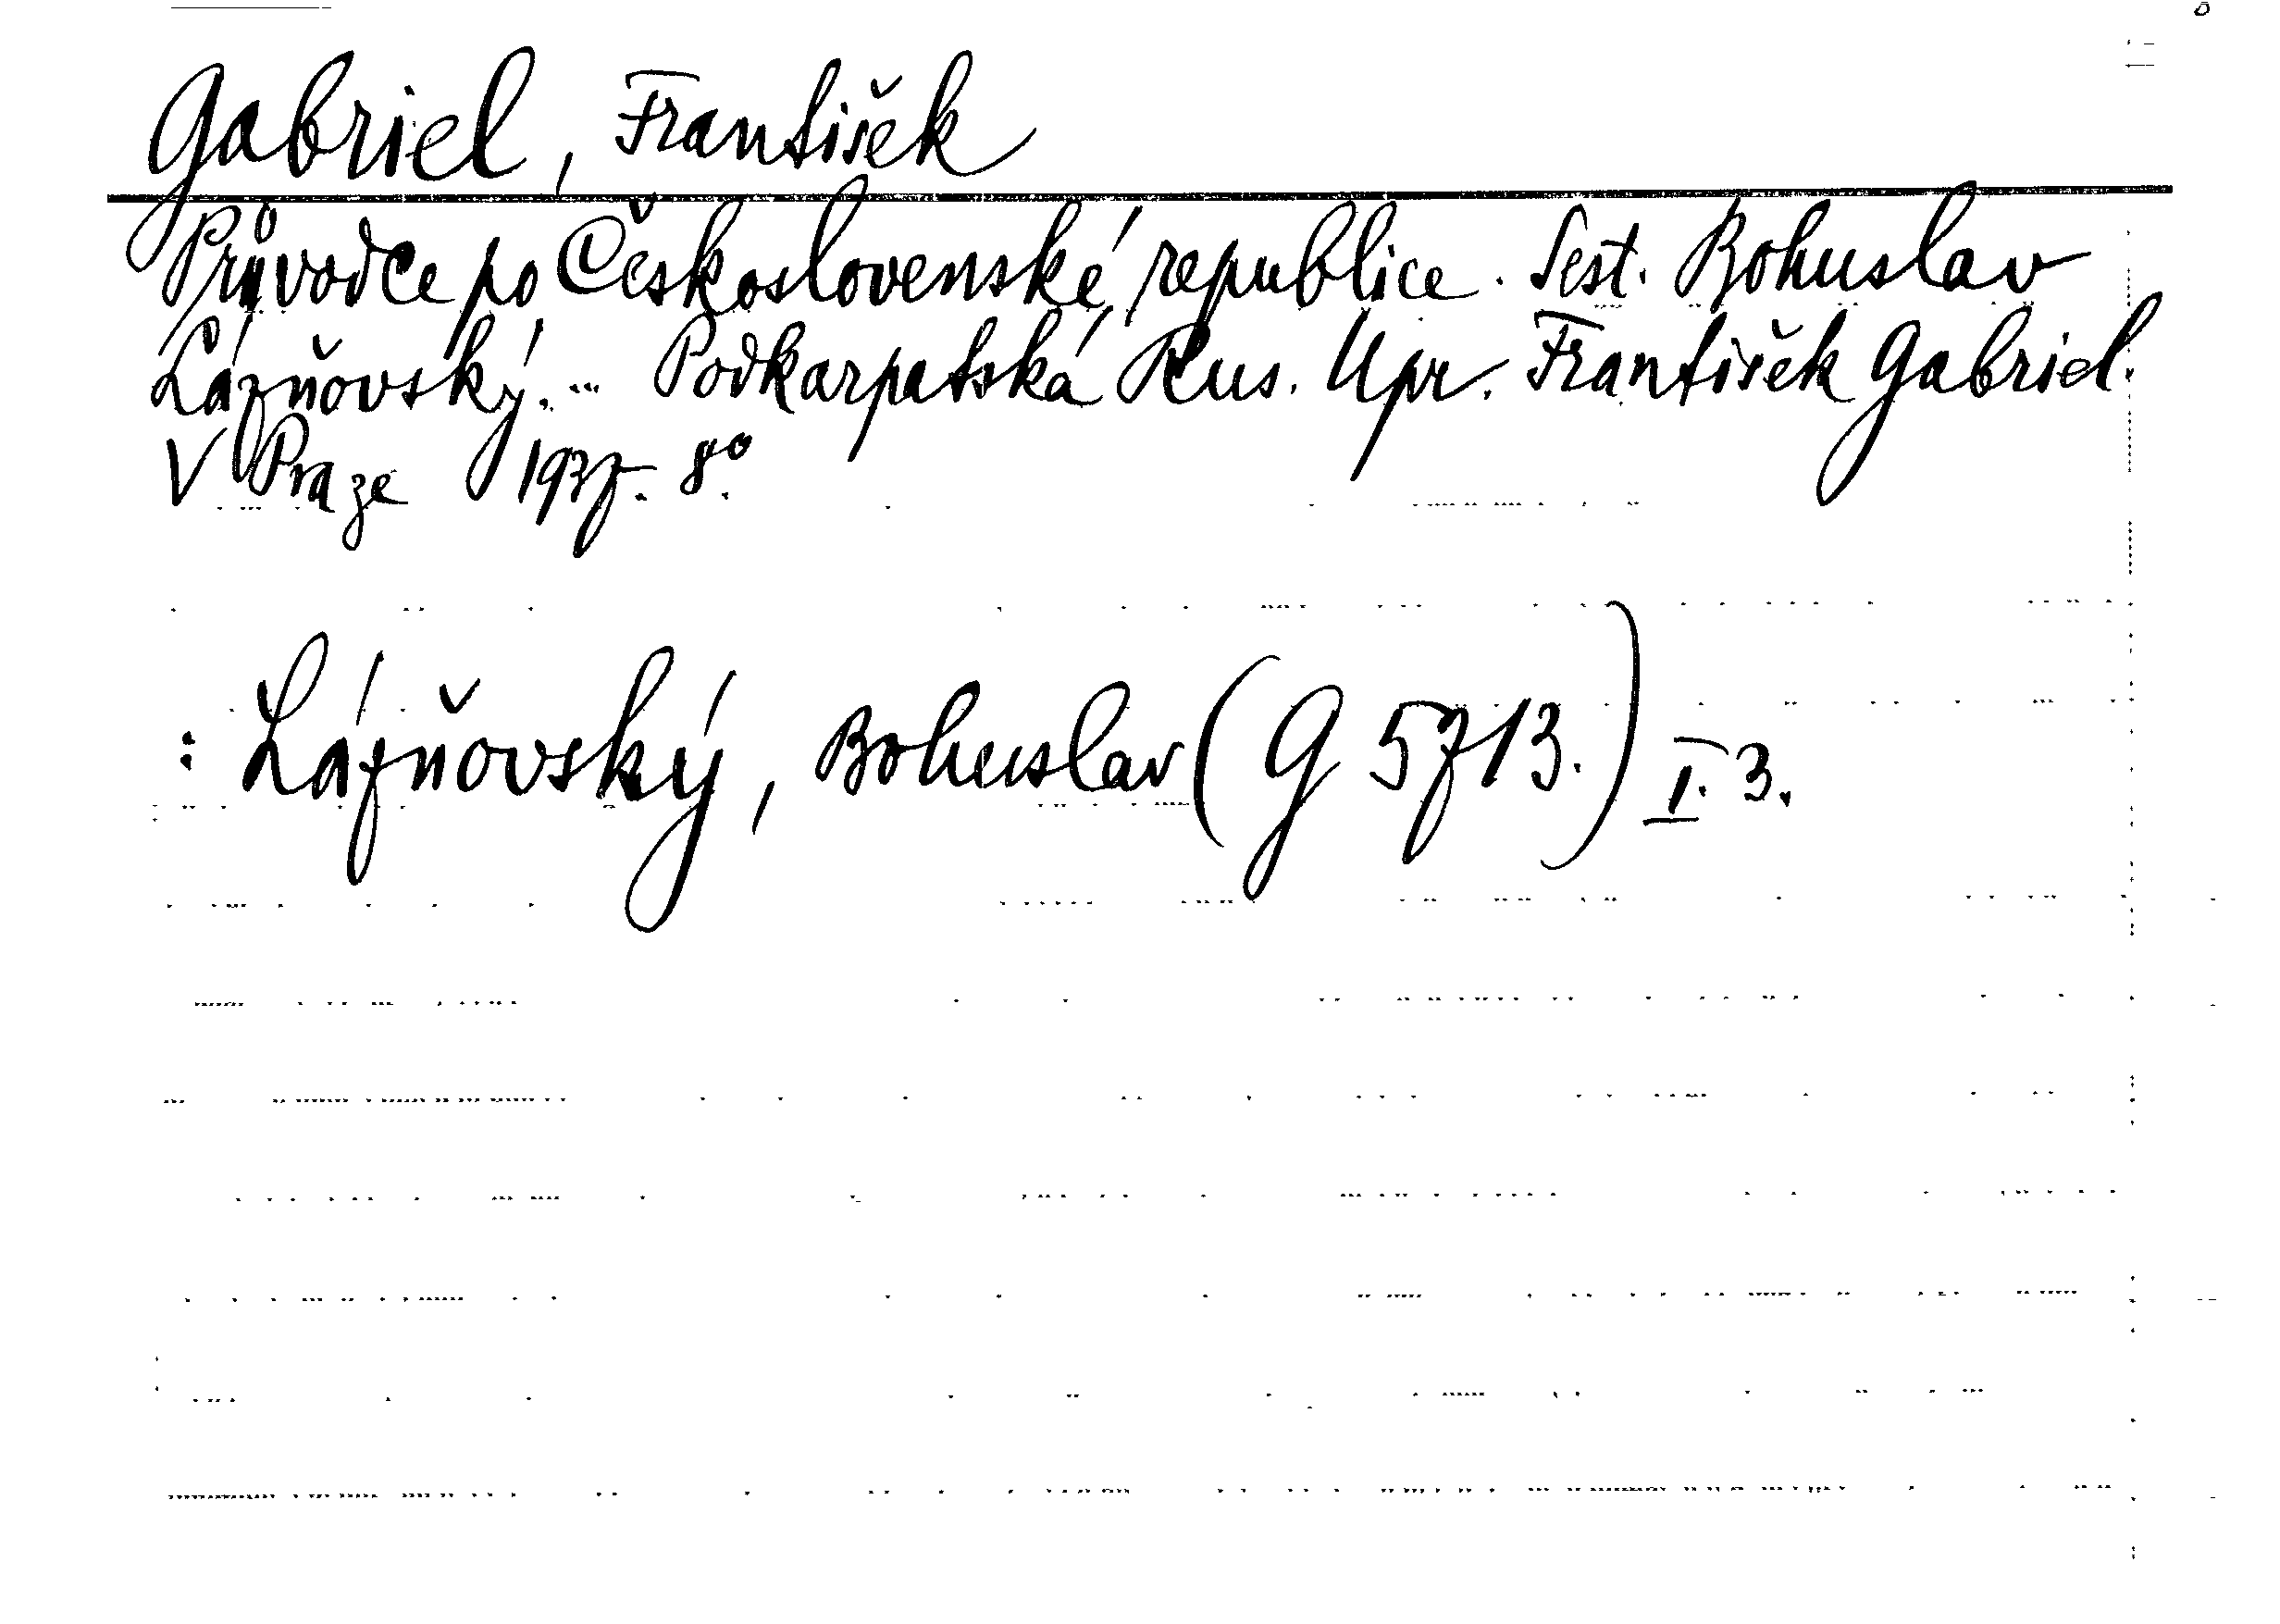 Gabriel, František
Průvodce po Československé republice. Sest. Bohuslav
Lázňovský. ... Podkarpatská Rus. Upr. František Gabriel.
V Praze 1937. 8°.
: Lázňovský, Bohuslav (G 5713.) I. 3.